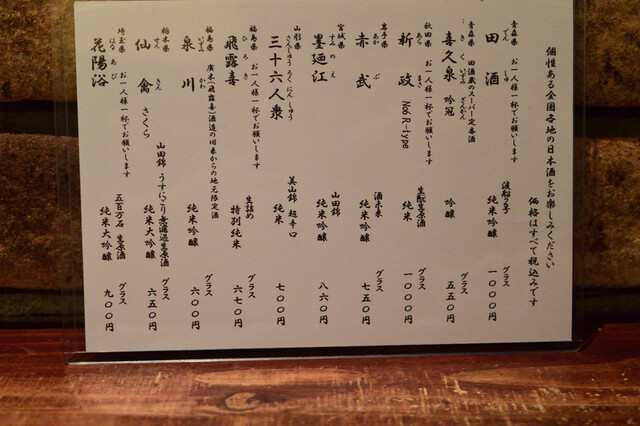 個性ある全国各地の日本酒をお楽しみください
価格はすべて税込みです
青森県 お一人様一杯でお願いします
田酒 でんしゅ
純米吟醸 グラス 一〇〇〇円
青森県 田酒蔵のスーパー定番酒
喜久泉 吟冠 きくいずみ ぎんかん
吟醸 グラス 五五〇円
秋田県 お一人様一杯でお願いします
新政 No6 R-type あらまさ
生酛生原酒
純米 グラス 一〇〇〇円
岩手県
赤武 あかぶ
酒未来
純米吟醸 グラス 七五〇円
宮城県
墨廼江 すみのえ
山田錦
純米吟醸 グラス 八六〇円
山形県
三十六人衆 さんじゅうろくにんしゅう
美山錦 超辛口
純米 グラス 七〇〇円
福島県 お一人様一杯でお願いします
飛露喜 ひろき
生詰め
特別純米 グラス 六七〇円
福島県 廣木(飛露喜)酒造の旧来からの地元限定酒
泉川 いずみかわ
純米吟醸 グラス 六〇〇円
栃木県
仙禽 さくら せんきん
山田錦 うすにごり無濾過生原酒
純米大吟醸 グラス 六五〇円
埼玉県 お一人様一杯でお願いします
花陽浴 はなあび
五百万石 生原酒
純米大吟醸 グラス 九〇〇円